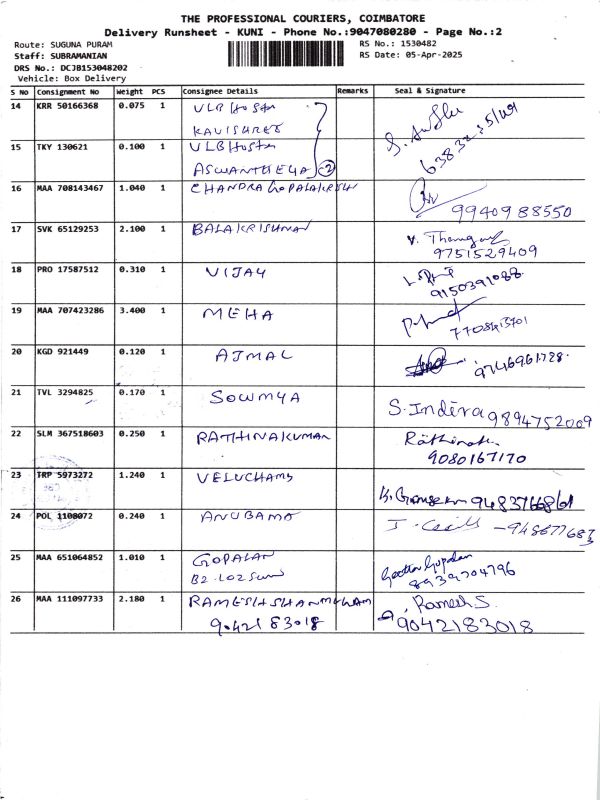 THE PROFESSIONAL COURIERS, COIMBATORE
Delivery Runsheet - KUNI - Phone No.:9047080280 - Page No.:2
Route: SUGUNA PURAM RS No.: 1530482
Staff: SUBRAMANIAN RS Date: 05-Apr-2025
DRS No.: DCJB153048202
Vehicle: Box Delivery
S No Consignment No Weight PCS Consignee Details Remarks Seal & Signature
14 KRR 50166368 0.075 1 VLB Hosta
KAVISHREE
15 TKY 130621 0.100 1 VLB Hosta
ASWANTHEYA -2
16 MAA 708143467 1.040 1 CHANDRAGOPALAKRISH
9940988550
17 SVK 65129253 2.100 1 BALAKRISHNAN
9751529409
18 PRO 17587512 0.310 1 VIJAY
9150391088
19 MAA 707423286 3.400 1 MEHA
20 KGD 921449 0.120 1 AJMAL
9746961728
21 TVL 3294825 0.170 1 SOWMYA
S. Indira 9894752009
22 SLM 367518603 0.250 1 RATHINAKUMAR
9080167170
23 TRP 5973272 1.240 1 VELUCHAMY
24 POL 1108072 0.240 1 ANUBAMA
25 MAA 651064852 1.010 1 GOPALAN Geetha Gopalan
8939704796
26 MAA 111097733 2.180 1 RAMESH SHANMUGAM Ramesh S.
9042183018 9042183018